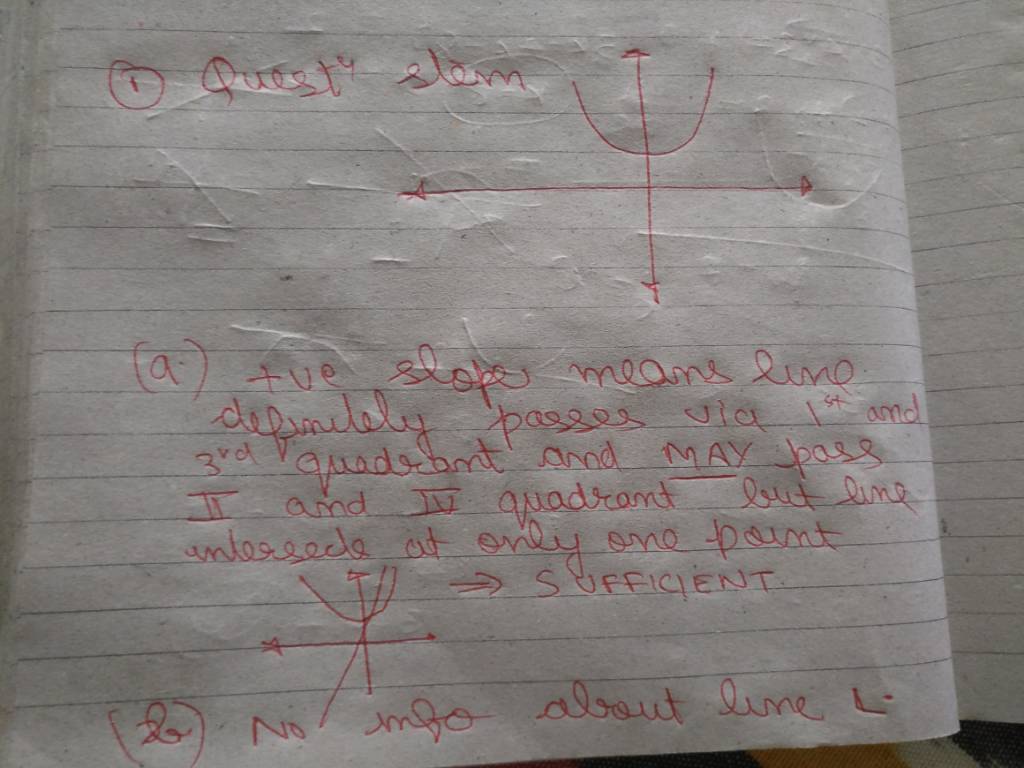 ① Questⁿ stem
(a.) +ve slope means line
definitely passes via 1st and
3rd quadrant and MAY pass
II and IV quadrant but line
intersects at only one point
⇒ SUFFICIENT.
(b) No info about line L.